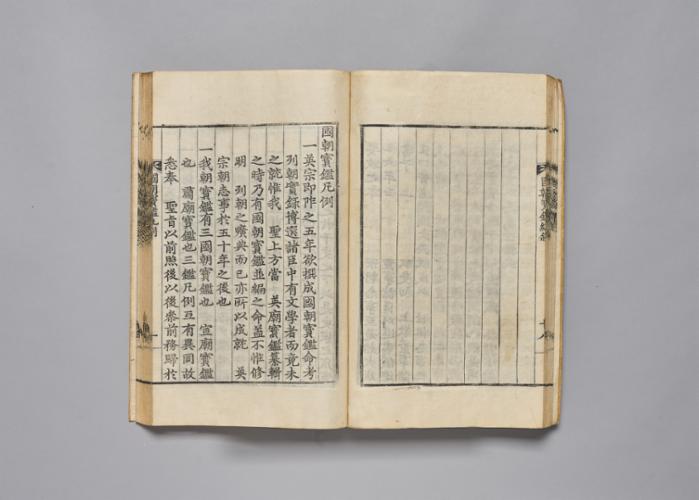 國朝寶鑑凡例
一英宗即阼之五年欲撰成國朝寶鑑命考
列朝實錄博選諸臣中有文學者而竟未
之就惟我 聖上方當 英廟寶鑑纂輯
之時乃有國朝寶鑑並編之命盖不惟修
明 列朝之曠典而已亦所以成就 英
宗朝志事於五十年之後也
一我朝寶鑑有三國朝寶鑑也 宣廟寶鑑
也 肅廟寶鑑也三鑑凡例互有異同故
悉奉 聖旨以前照後以後叅前務歸於
國朝寶鑑凡例
一